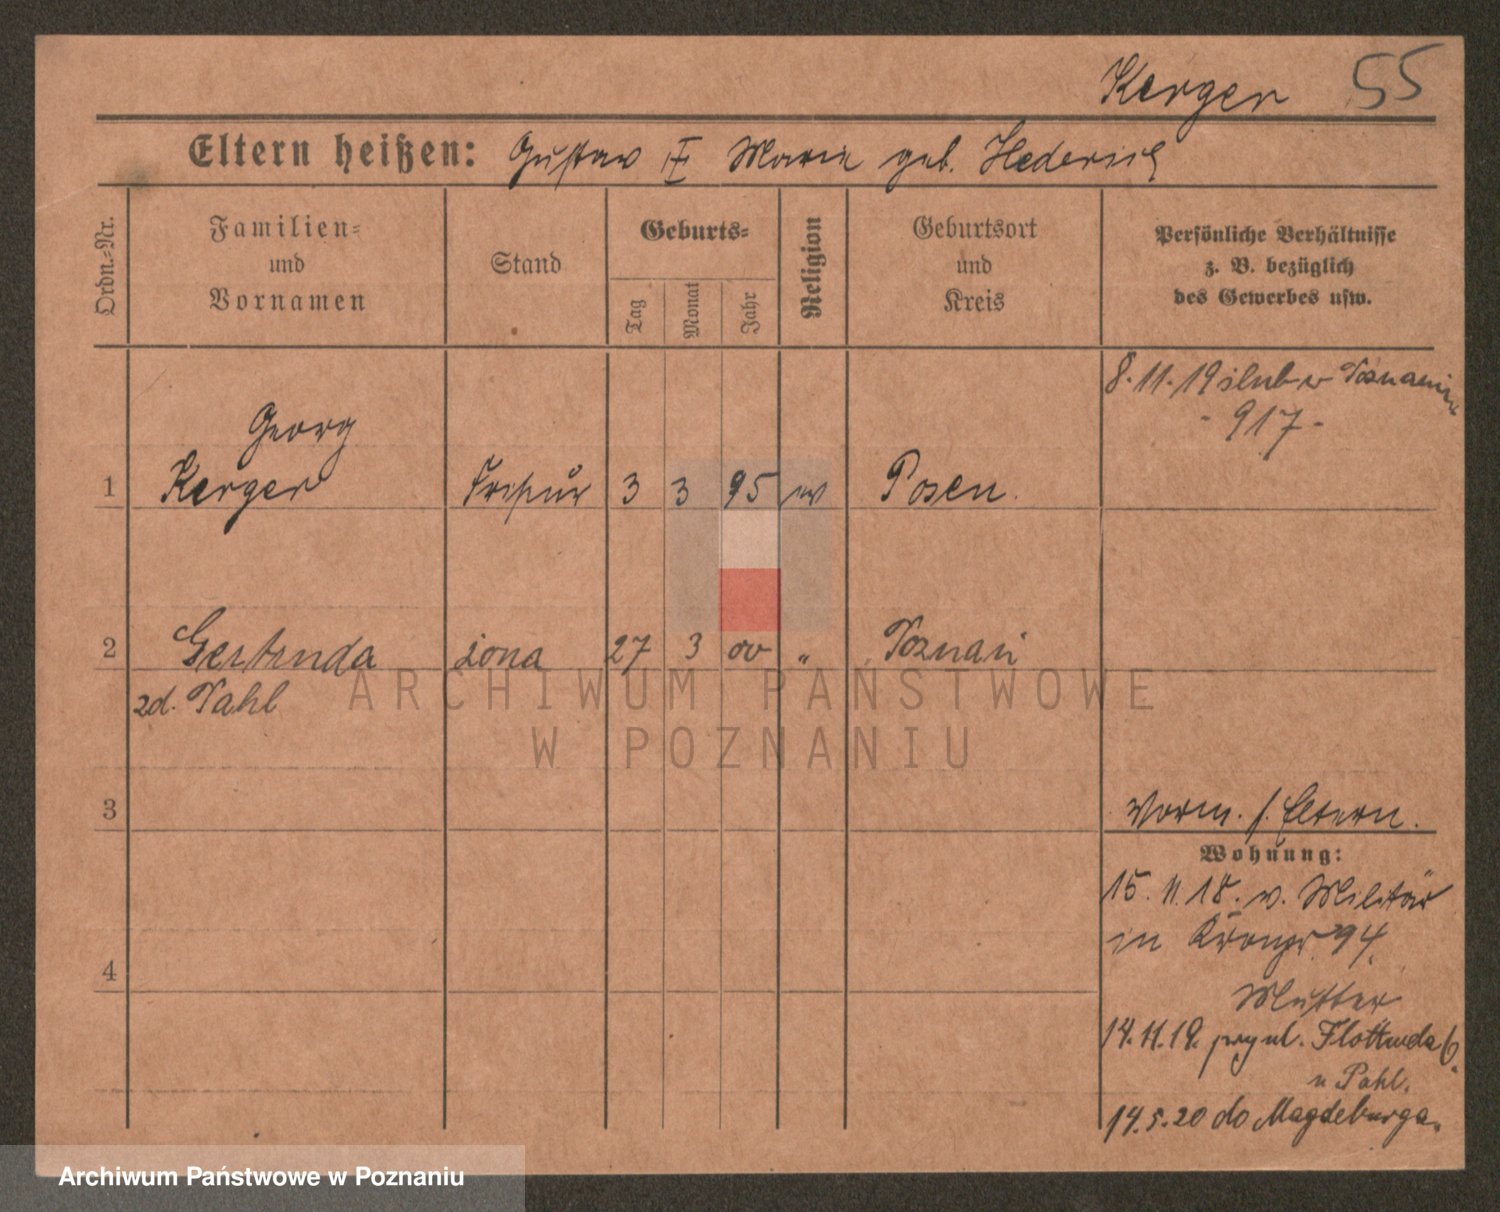 Kerger 55
Eltern heißen: Gustav Marie geb. Hederich
Ordn.-Nr.
Familien-
und
Vornamen
Stand
Geburts-
Tag
Monat
Jahr
Religion
Geburtsort
und
Kreis
Persönliche Verhältnisse
z. B. bezüglich
des Gewerbes usw.
8.11.19 ślub w Poznaniu
- 917 -
Georg
1 Kerger Friseur 3 3 95 ev Posen.
2 Gertruda żona 27 3 00 " Poznań
zd. Pahl
3
Vorm. s. Eltern.
Wohnung:
15.11.18. v. Militär
in Kronpr. 94.
4
Mutter
14.11.19. przyul. Flottwela 6.
u Pahl.
14.5.20 do Magdeburga.
ARCHIWUM PAŃSTWOWE
W POZNANIU
Archiwum Państwowe w Poznaniu